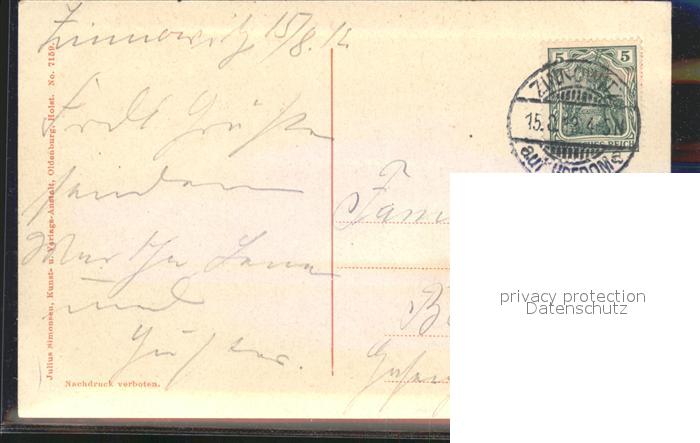 Zinnowitz 15/8.12
Frdl. Grüße
senden
Martha, Lena
und
Fam
Julius Simonsen, Kunst- u. Verlags-Anstalt, Oldenburg, Holst. No. 7159.
Nachdruck verboten.
5 5
ZINNOWITZ
15.8.
auf USEDOM
REICH
privacy protection
Datenschutz